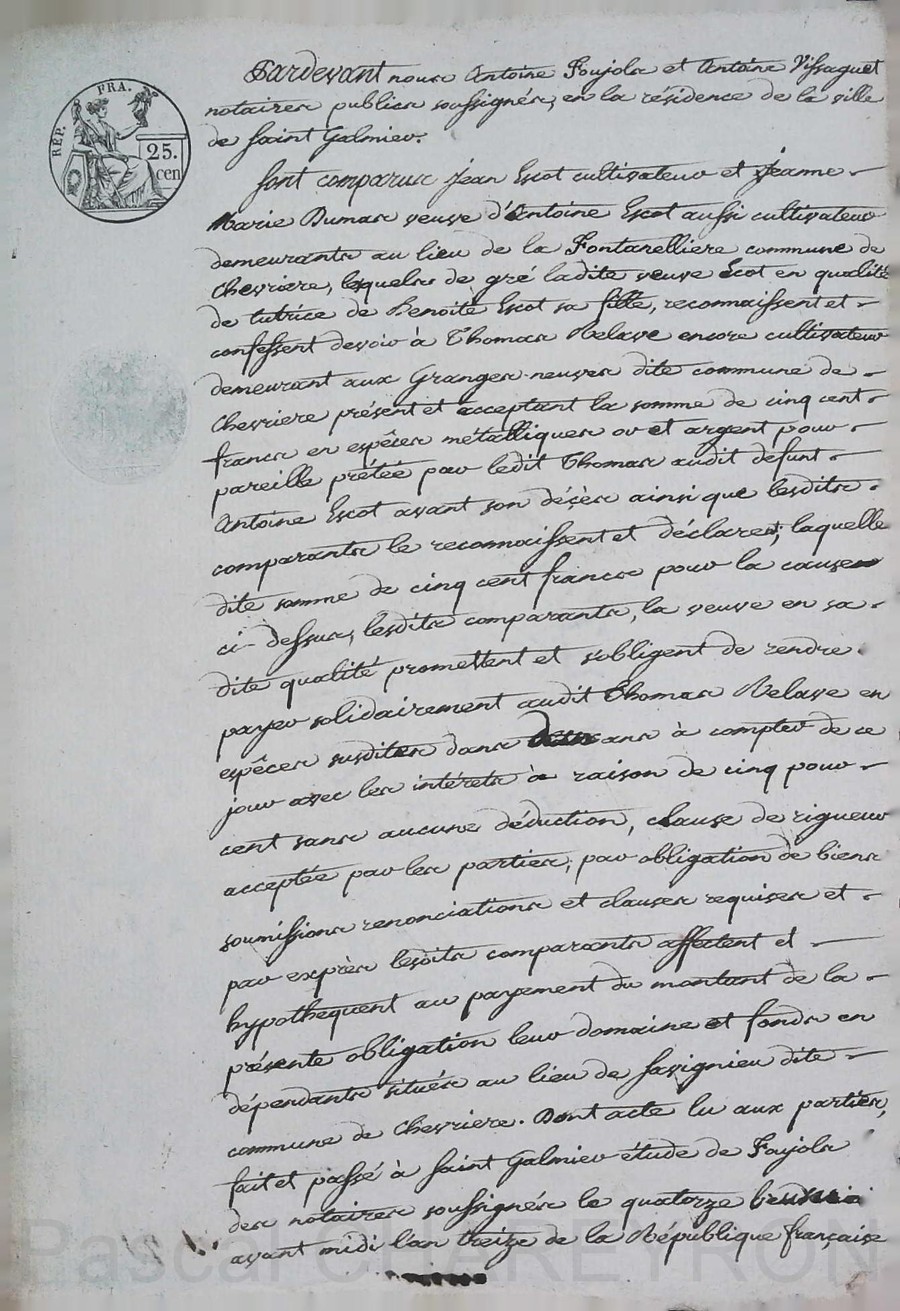 RÉP. FRA.
25.
cen
Pardevant nous Antoine Poujols et Antoine Vissaguet
notaires publics soussignés, en la résidence de la ville
de Saint Galmier.
Sont comparus Jean Escot cultivateur et Jeanne
Marie Dumas veuve d'Antoine Escot aussi cultivateur
demeurants au lieu de la Fontanelliere commune de
Chevriere, lesquels de gré ladite veuve Escot en qualité
de tutrice de Benoite Escot sa fille, reconnaissent et
confessent devoir à Thomas Relave encore cultivateur
demeurant aux Granges-neuves dite commune de
Chevriere présent et acceptant la somme de cinq cent
francs en espèces métalliques or et argent pour
pareille prêtée par ledit Thomas audit defunt
Antoine Escot avant son décès ainsi que lesdits
comparants le reconnaissent et déclarent, laquelle
dite somme de cinq cent francs pour la cause
ci-dessus, lesdits comparants, la veuve en sa
dite qualité promettent et s'obligent de rendre
payer solidairement audit Thomas Relave en
espèces susdites dans ans à compter de ce
jour avec les intérêts à raison de cinq pour
cent sans aucune déduction, clause de rigueur
acceptée par les parties, par obligation de biens
soumissions renonciations et clauses requises et
par exprès lesdits comparants affectent et
hypothequent au payement du montant de la
présente obligation leur domaine et fonds en
dépendants situés au lieu de Savignieu dite
commune de Chevriere. Dont acte lu aux parties,
fait et passé à Saint Galmier étude de Poujols
des notaires soussignés le quatorze
avant midi l'an treize de la République française
Pascal CHAREYRON